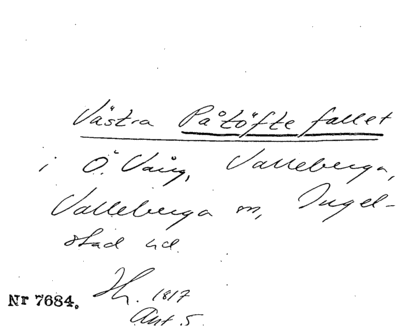 Västra Påtöfte fallet
i Ö. Vång, Valleberga,
Valleberga sn, Ingel-
stad hd.
Nr 7684. Hh. 1817
Akt 5.